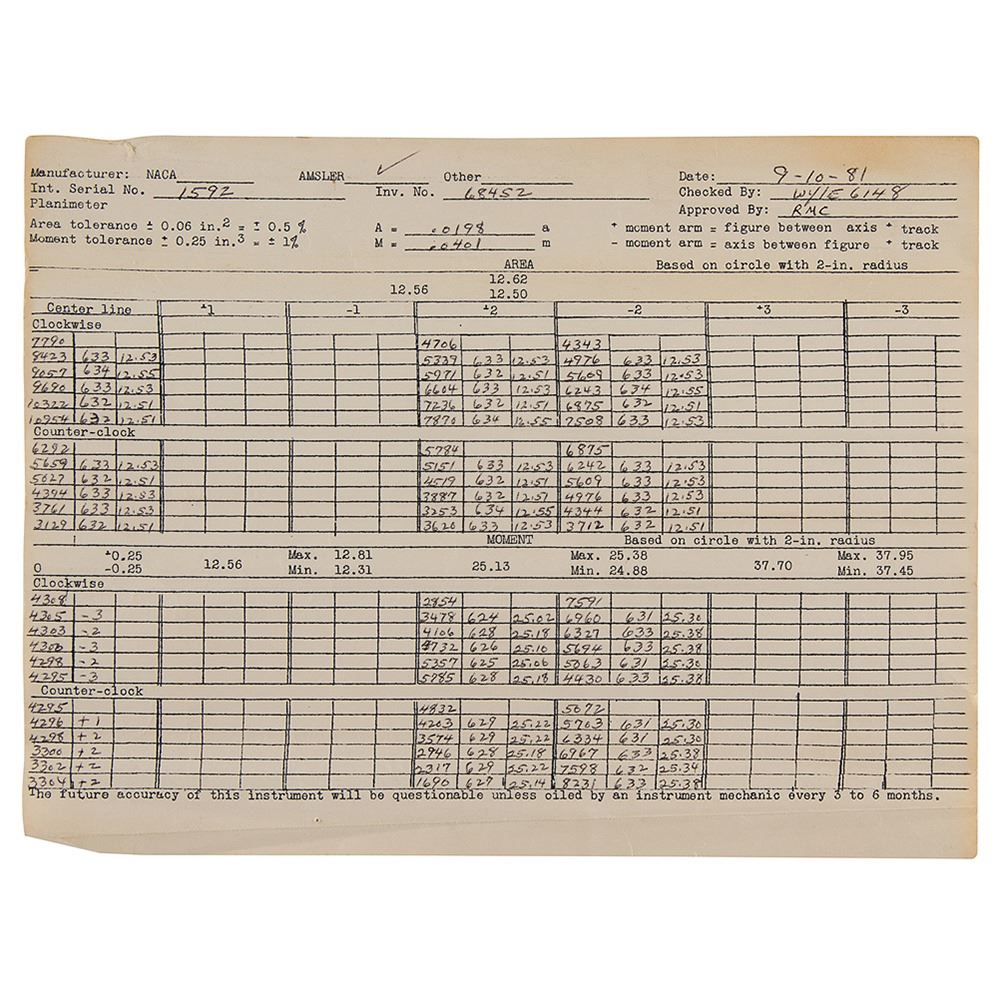 Manufacturer: NACA AMSLER ✓ Other Date: 9-10-81
Int. Serial No. 1592 Inv. No. 68452 Checked By: WYLE 6148
Planimeter Approved By: RMC
Area tolerance ± 0.06 in.2 = ± 0.5 % A = .0198 a + moment arm = figure between axis + track
Moment tolerance ± 0.25 in.3 = ± 1% M = .0401 m - moment arm = axis between figure + track
AREA Based on circle with 2-in. radius
12.62
12.56 12.50
Center line +1 -1 +2 -2 +3 -3
Clockwise
7790 4706 4343
8423 633 12.53 5339 633 12.53 4976 633 12.53
9057 634 12.55 5971 632 12.51 5609 633 12.53
9690 633 12.53 6604 633 12.53 6243 634 12.55
10322 632 12.51 7236 632 12.51 6875 632 12.51
10954 632 12.51 7870 634 12.55 7508 633 12.53
Counter-clock
6292 5784 6875
5659 633 12.53 5151 633 12.53 6242 633 12.53
5027 632 12.51 4519 632 12.51 5609 633 12.53
4394 633 12.53 3887 632 12.51 4976 633 12.53
3761 633 12.53 3253 634 12.55 4344 632 12.51
3129 632 12.51 3620 633 12.53 3712 632 12.51
MOMENT Based on circle with 2-in. radius
+0.25 Max. 12.81 Max. 25.38 Max. 37.95
0 -0.25 12.56 Min. 12.31 25.13 Min. 24.88 37.70 Min. 37.45
Clockwise
4308 2854 7591
4305 -3 3478 624 25.02 6960 631 25.30
4303 -2 4106 628 25.18 6327 633 25.38
4300 -3 4732 626 25.10 5694 633 25.38
4298 -2 5357 625 25.06 5063 631 25.30
4295 -3 5985 628 25.18 4430 633 25.38
Counter-clock
4295 4832 5072
4296 +1 4203 629 25.22 5703 631 25.30
4298 +2 3574 629 25.22 6334 631 25.30
3300 +2 2946 628 25.18 6967 633 25.38
3302 +2 2317 629 25.22 7598 632 25.34
3304 +2 1690 627 25.14 8231 633 25.38
The future accuracy of this instrument will be questionable unless oiled by an instrument mechanic every 3 to 6 months.